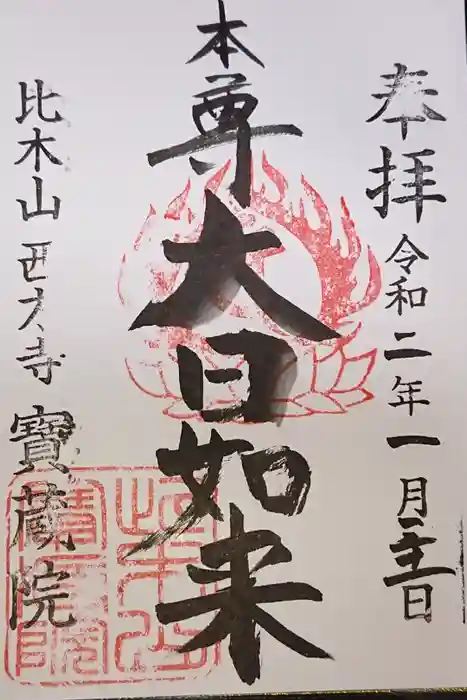 奉拝 令和二年一月二十一日
本尊 大日如来
比木山 西大寺 寶蔵院